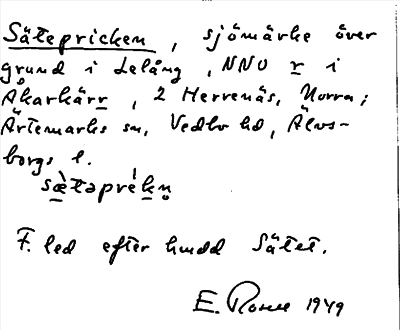 Sätepricken, sjömärke över
grund i Lelång, NNO r i
Åkarkärr, 2 Herrenäs, Norra;
Ärtemarks sn, Vedbo hd, Älvs-
borgs l.
sæ̀tapréken
F. led efter hudd Sätet.
E. Rosell 1949